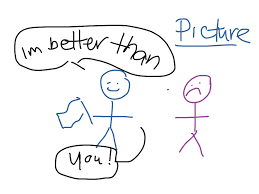 Picture
im better than
you!